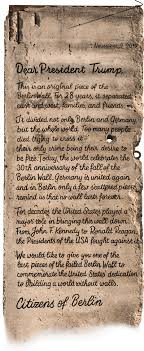 November 9, 2019
Dear President Trump,
This is an original piece of the
Berlin Wall. For 28 years, it separated
east and west, families, and friends.
It divided not only Berlin and Germany,
but the whole world. Too many people
died trying to cross it –
their only crime being their desire to
be free. Today, the world celebrates the
30th anniversary of the fall of the
Berlin Wall. Germany is united again
and in Berlin only a few scattered pieces
remind us that no wall lasts forever.
For decades, the United States played a
major role in bringing this wall down.
From John F. Kennedy to Ronald Reagan,
the Presidents of the USA fought against it.
We would like to give you one of the
last pieces of the failed Berlin Wall to
commemorate the United States' dedication
to building a world without walls.
Citizens of Berlin